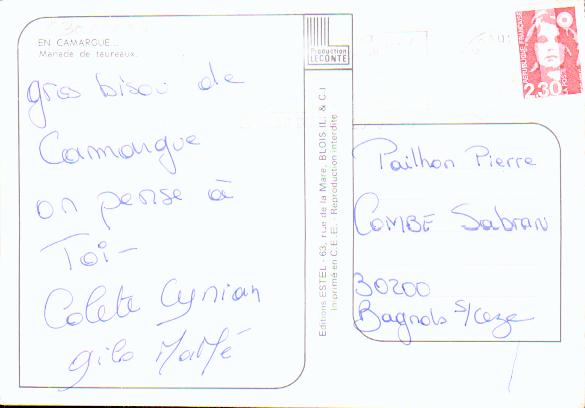 EN CAMARGUE...
Manade de taureaux.
gros bisou de
Camargue
on pense à
Toi-
Colete Cyrian
gilo MaMé
Production
LECONTE
Editions ESTEL - 63, rue de la Mare, BLOIS (L. & C.)
Imprimé en C.E.E. Reproduction interdite
REPUBLIQUE FRANCAISE
2,30
LA POSTE
Pailhon Pierre
COMBE Sabran
30200
Bagnols s/Ceze